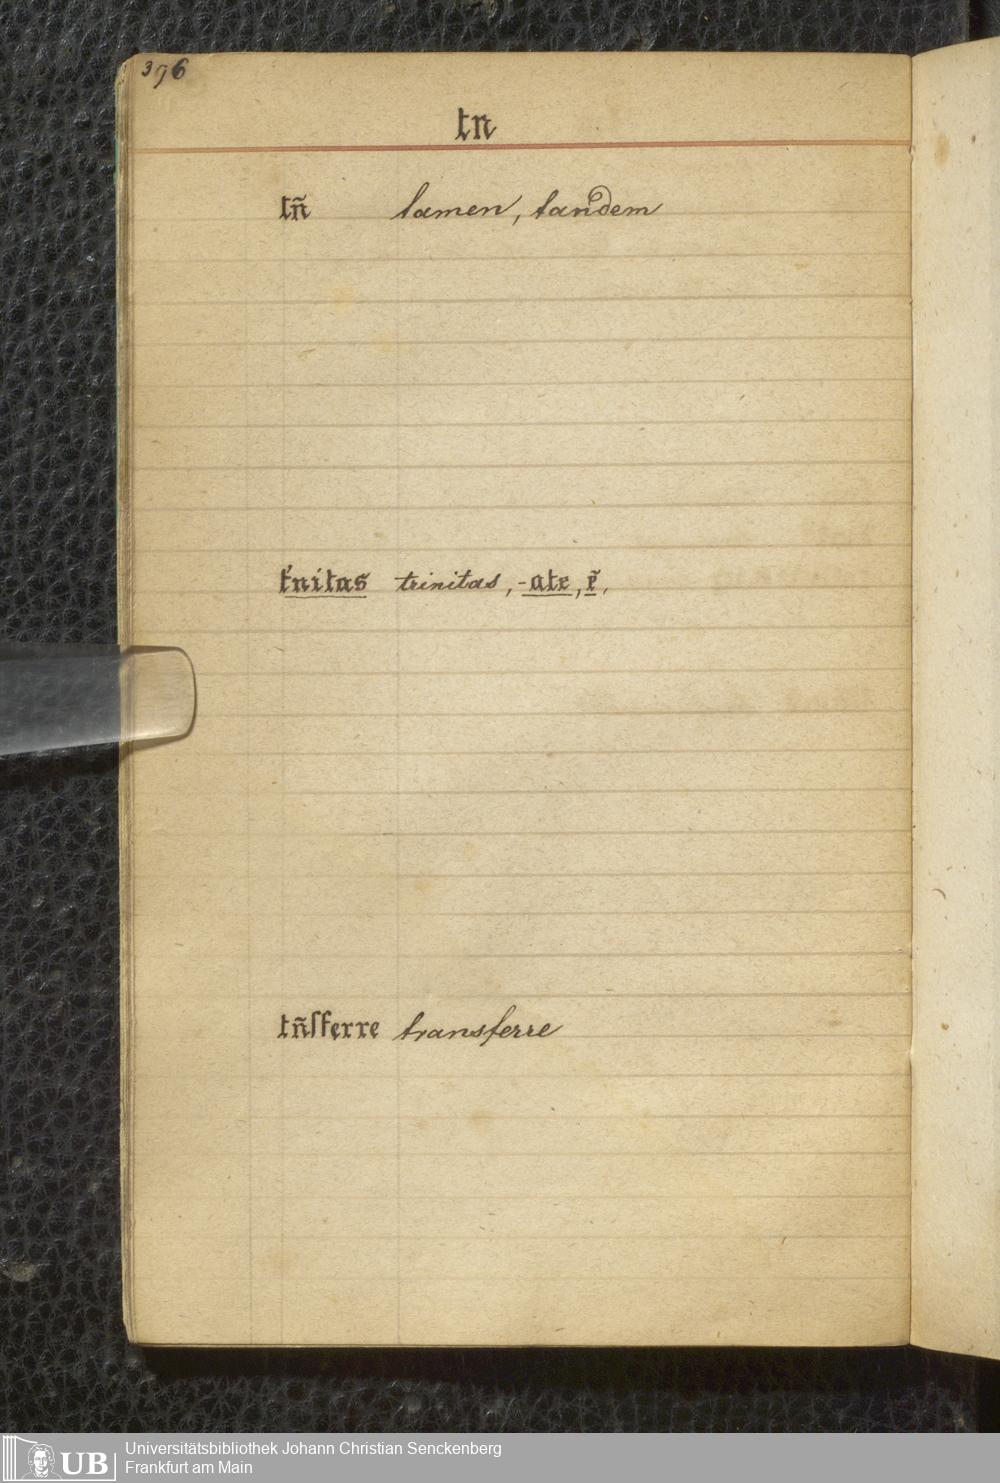 396
tn
tñ tamen, tandem
t̾nitas trinitas, -ate, ẽ,
tñſferre transferre
UB Universitätsbibliothek Johann Christian Senckenberg
Frankfurt am Main